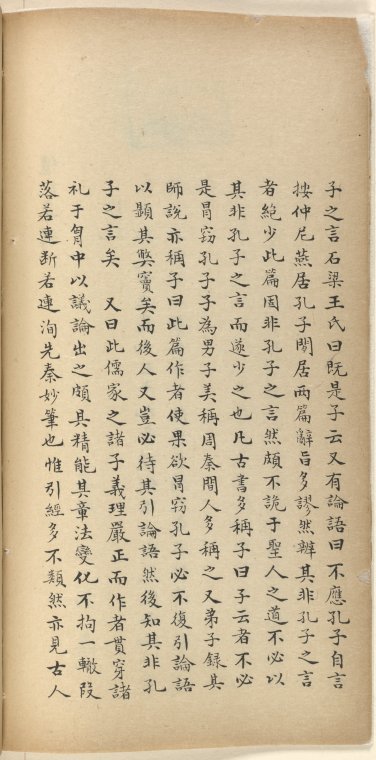 子之言石梁王氏曰既是子云又有論語曰不應孔子自言
按仲尼燕居孔子閒居兩篇辭旨多謬然辨其非孔子之言
者絶少此篇固非孔子之言然頗不詭于聖人之道不必以
其非孔子之言而遂少之也凡古書多稱子曰子云者不必
是冒竊孔子子為男子美稱周秦間人多稱之又弟子録其
師說亦稱子曰此篇作者使果欲冒竊孔子必不復引論語
以顕其獘竇矣而後人又豈必待其引論語然後知其非孔
子之言矣 又曰此儒家之諸子義理嚴正而作者貫穿諸
礼于胷中以議論出之頗具精能其章法變化不拘一轍段
落若連斷若連洵先秦妙筆也惟引經多不類然亦見古人